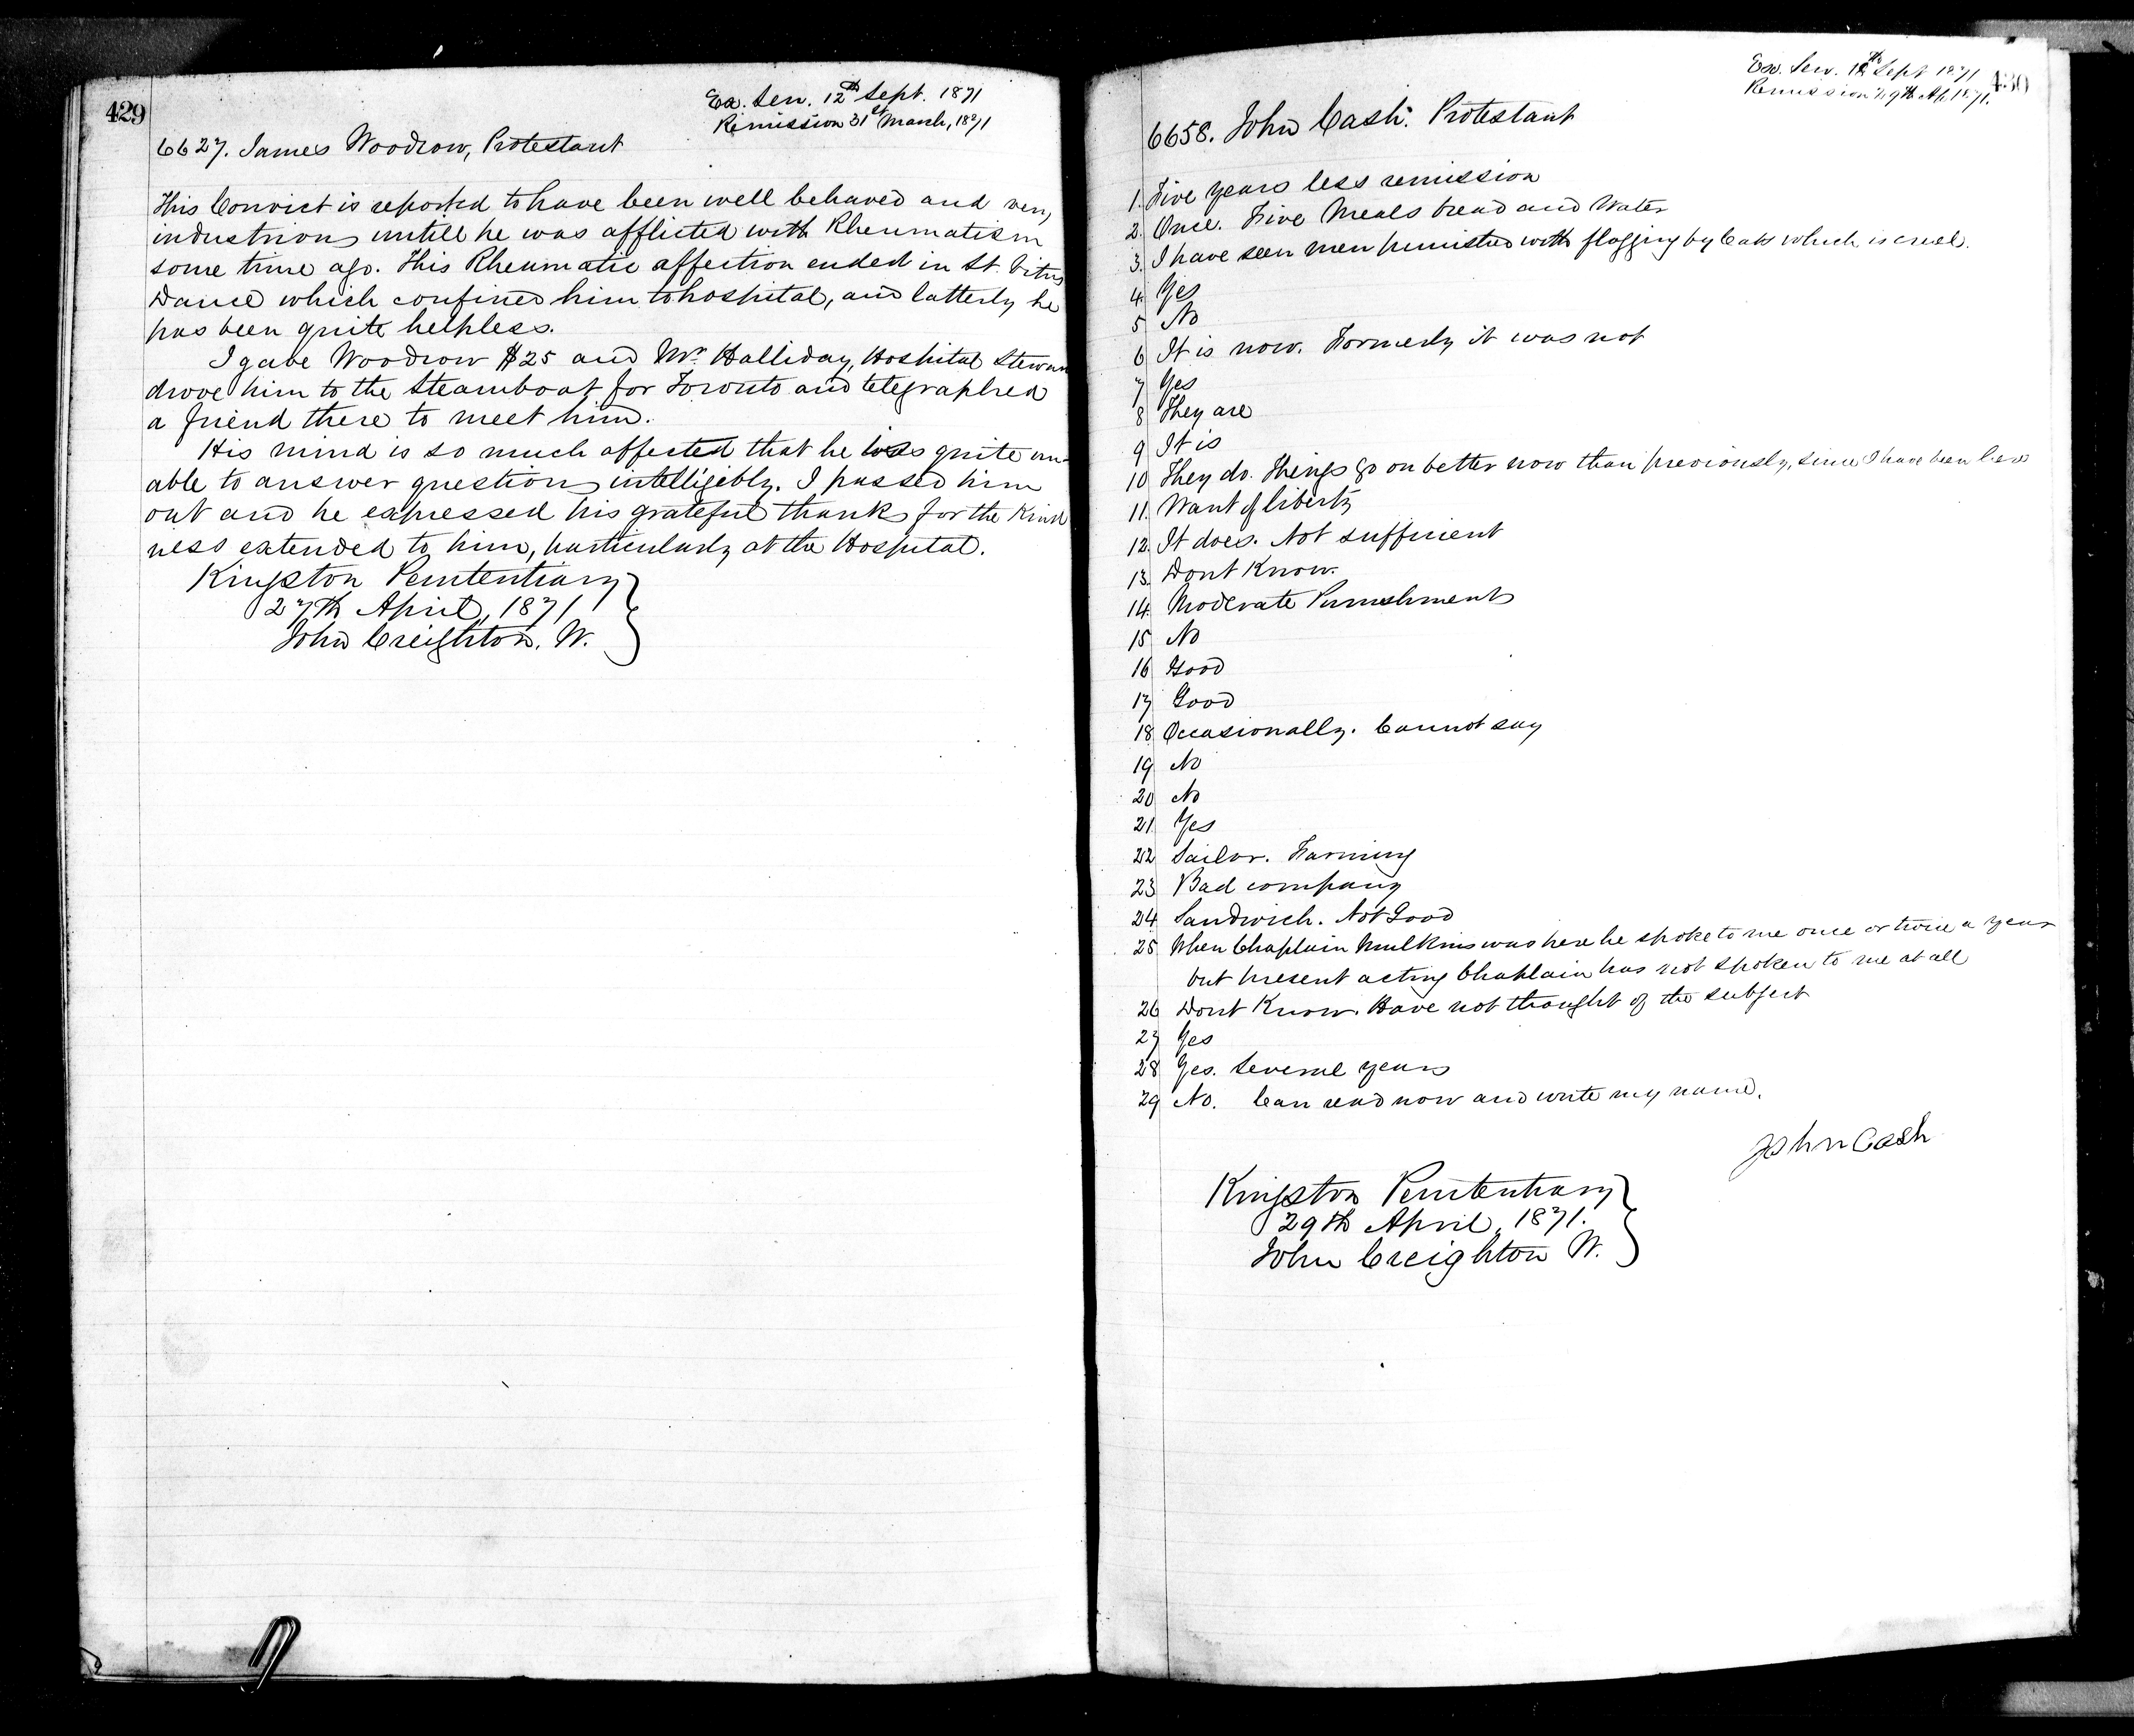 429
Ex. Sen. 12th Sept. 1871
Remission 31st March, 1871
6627. James Woodrow, Protestant
This Convict is reported to have been well behaved and very
industrious untill he was afflicted with Rheumatism
some time ago. This Rheumatic affection ended in St. Vitus
Dance which confined him to hospital, and latterly he
has been quite helpless.
I gave Woodrow $25 and Mr. Halliday, Hospital Steward
drove him to the Steamboat for Toronto and telegraphed
a friend there to meet him.
His mind is so much affected that he was quite un-
able to answer questions intelligibly. I passed him
out and he expressed his grateful thanks for the Kind
ness extended to him, particularly at the Hospital.
Kingston Penitentiary
27th April, 1871
John Creighton, W.
430
Ex. Sen. 12th Sept 1871
Remission 29th Ap. 1871.
6658. John Cash. Protestant
1. Five years less remission
2. Once. Five Meals bread and Water
3. I have seen men punished with flogging by Cats which is cruel.
4. Yes
5 No
6 It is now. Formerly it was not
7 Yes
8 They are
9 It is
10 They do. Things go on better now than previously, since I have been here
11. Want of liberty
12. It does. Not sufficient
13. Dont Know.
14. Moderate Punishments
15 No
16 Good
17 Good
18 Occasionally. Cannot say
19 No
20 No
21 Yes
22 Sailor. Farming
23 Bad company
24 Sandwich. Not Good
25 When Chaplain Mulkins was here he spoke to me once or twice a year
but present acting Chaplain has not spoken to me at all
26 Dont Know. Have not thought of the subject
27 Yes
28 Yes. Several years
29 No. Can read now and write my name.
John Cash
Kingston Penitentiary
29th April, 1871.
John Creighton W.